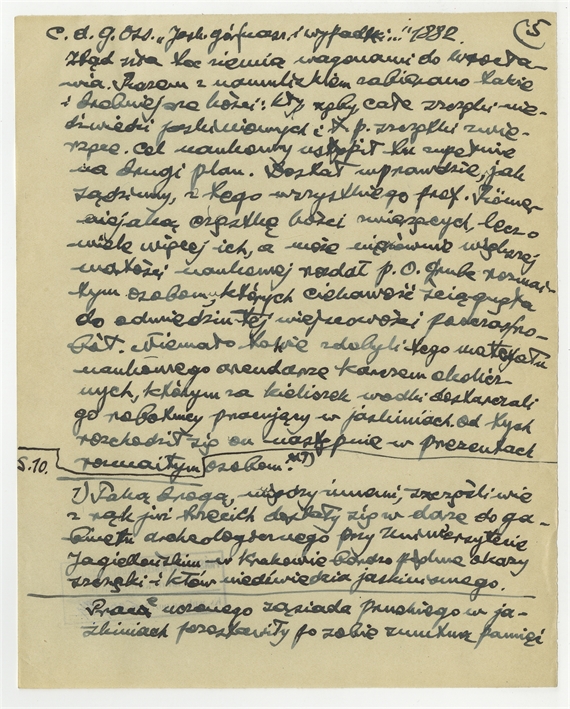 C. d. G. Oss. „Jask. górnicze i wypadki..." 1882. 5
stąd szła ta ziemia wagonami do Wrocła-
wia. Razem z namuliskiem zabierano także
i drobniejsze kości: kły zęby całe szczęki nie-
dźwiedzi jaskiniowych i t. p. szczątki zwie-
rzęce. Cel naukowy ustąpił tu zupełnie
na drugi plan. Dostał wprawdzie, jak
sądzimy, z tego wszystkiego prof. Römer
niejaką cząstkę kości zwierzęcych, lecz o
wiele więcej ich, a może nierównie większej
wartości naukowej rozdał p. O. Grube rozmai-
tym osobom, których ciekawość ściągnęła
do odwiedzin tej miejscowości podczas ro-
bót. Niemało także zdobyli tego materjału
naukowego arendarze karczem okolicz-
nych, którym za kieliszek wódki dostarczali
go robotnicy pracujący w jaskiniach. Od tych
rozchodził się on następnie w prezentach
S.10. rozmaitym osobom. 1)
1) Taką drogą, między innemi, szczęśliwie
z rąk już trzecich dostały się w darze do ga-
binetu archeologicznego przy Uniwersytecie
Jagiellońskim w Krakowie bardzo piękne okazy
szczęki i kłów niedźwiedzia jaskiniowego.
Prace uczonego sąsiada pruskiego w ja-
skiniach pozostawiły po sobie smutną pamięć